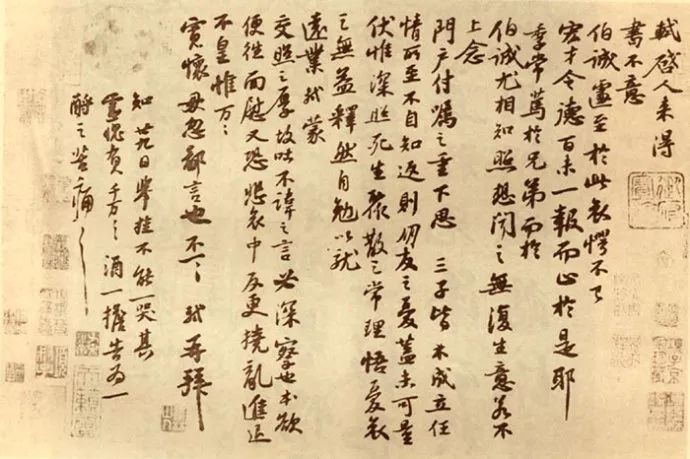 軾啓人来得
書不意
伯誠遽至於此哀愕不已
宏才令德百未一報而止於是耶
季常篤於兄弟而於
伯誠尤相知照想聞之無復生意若不
上念
門户付囑之重下思三子皆未成立任
情所至不自知返則朋友之憂蓋未可量
伏惟深照死生聚散之常理悟憂哀
之無益釋然自勉以就
遠業軾蒙
交照之厚故吐不諱之言必深察也本欲
便往面慰又恐悲哀中反更撓亂進退
不皇惟万万
寬懷毋忽鄙言也不一一軾再拜
知廿九日舉掛不能一哭其
靈愧負千万千万酒一擔告為一
酹之苦痛苦痛